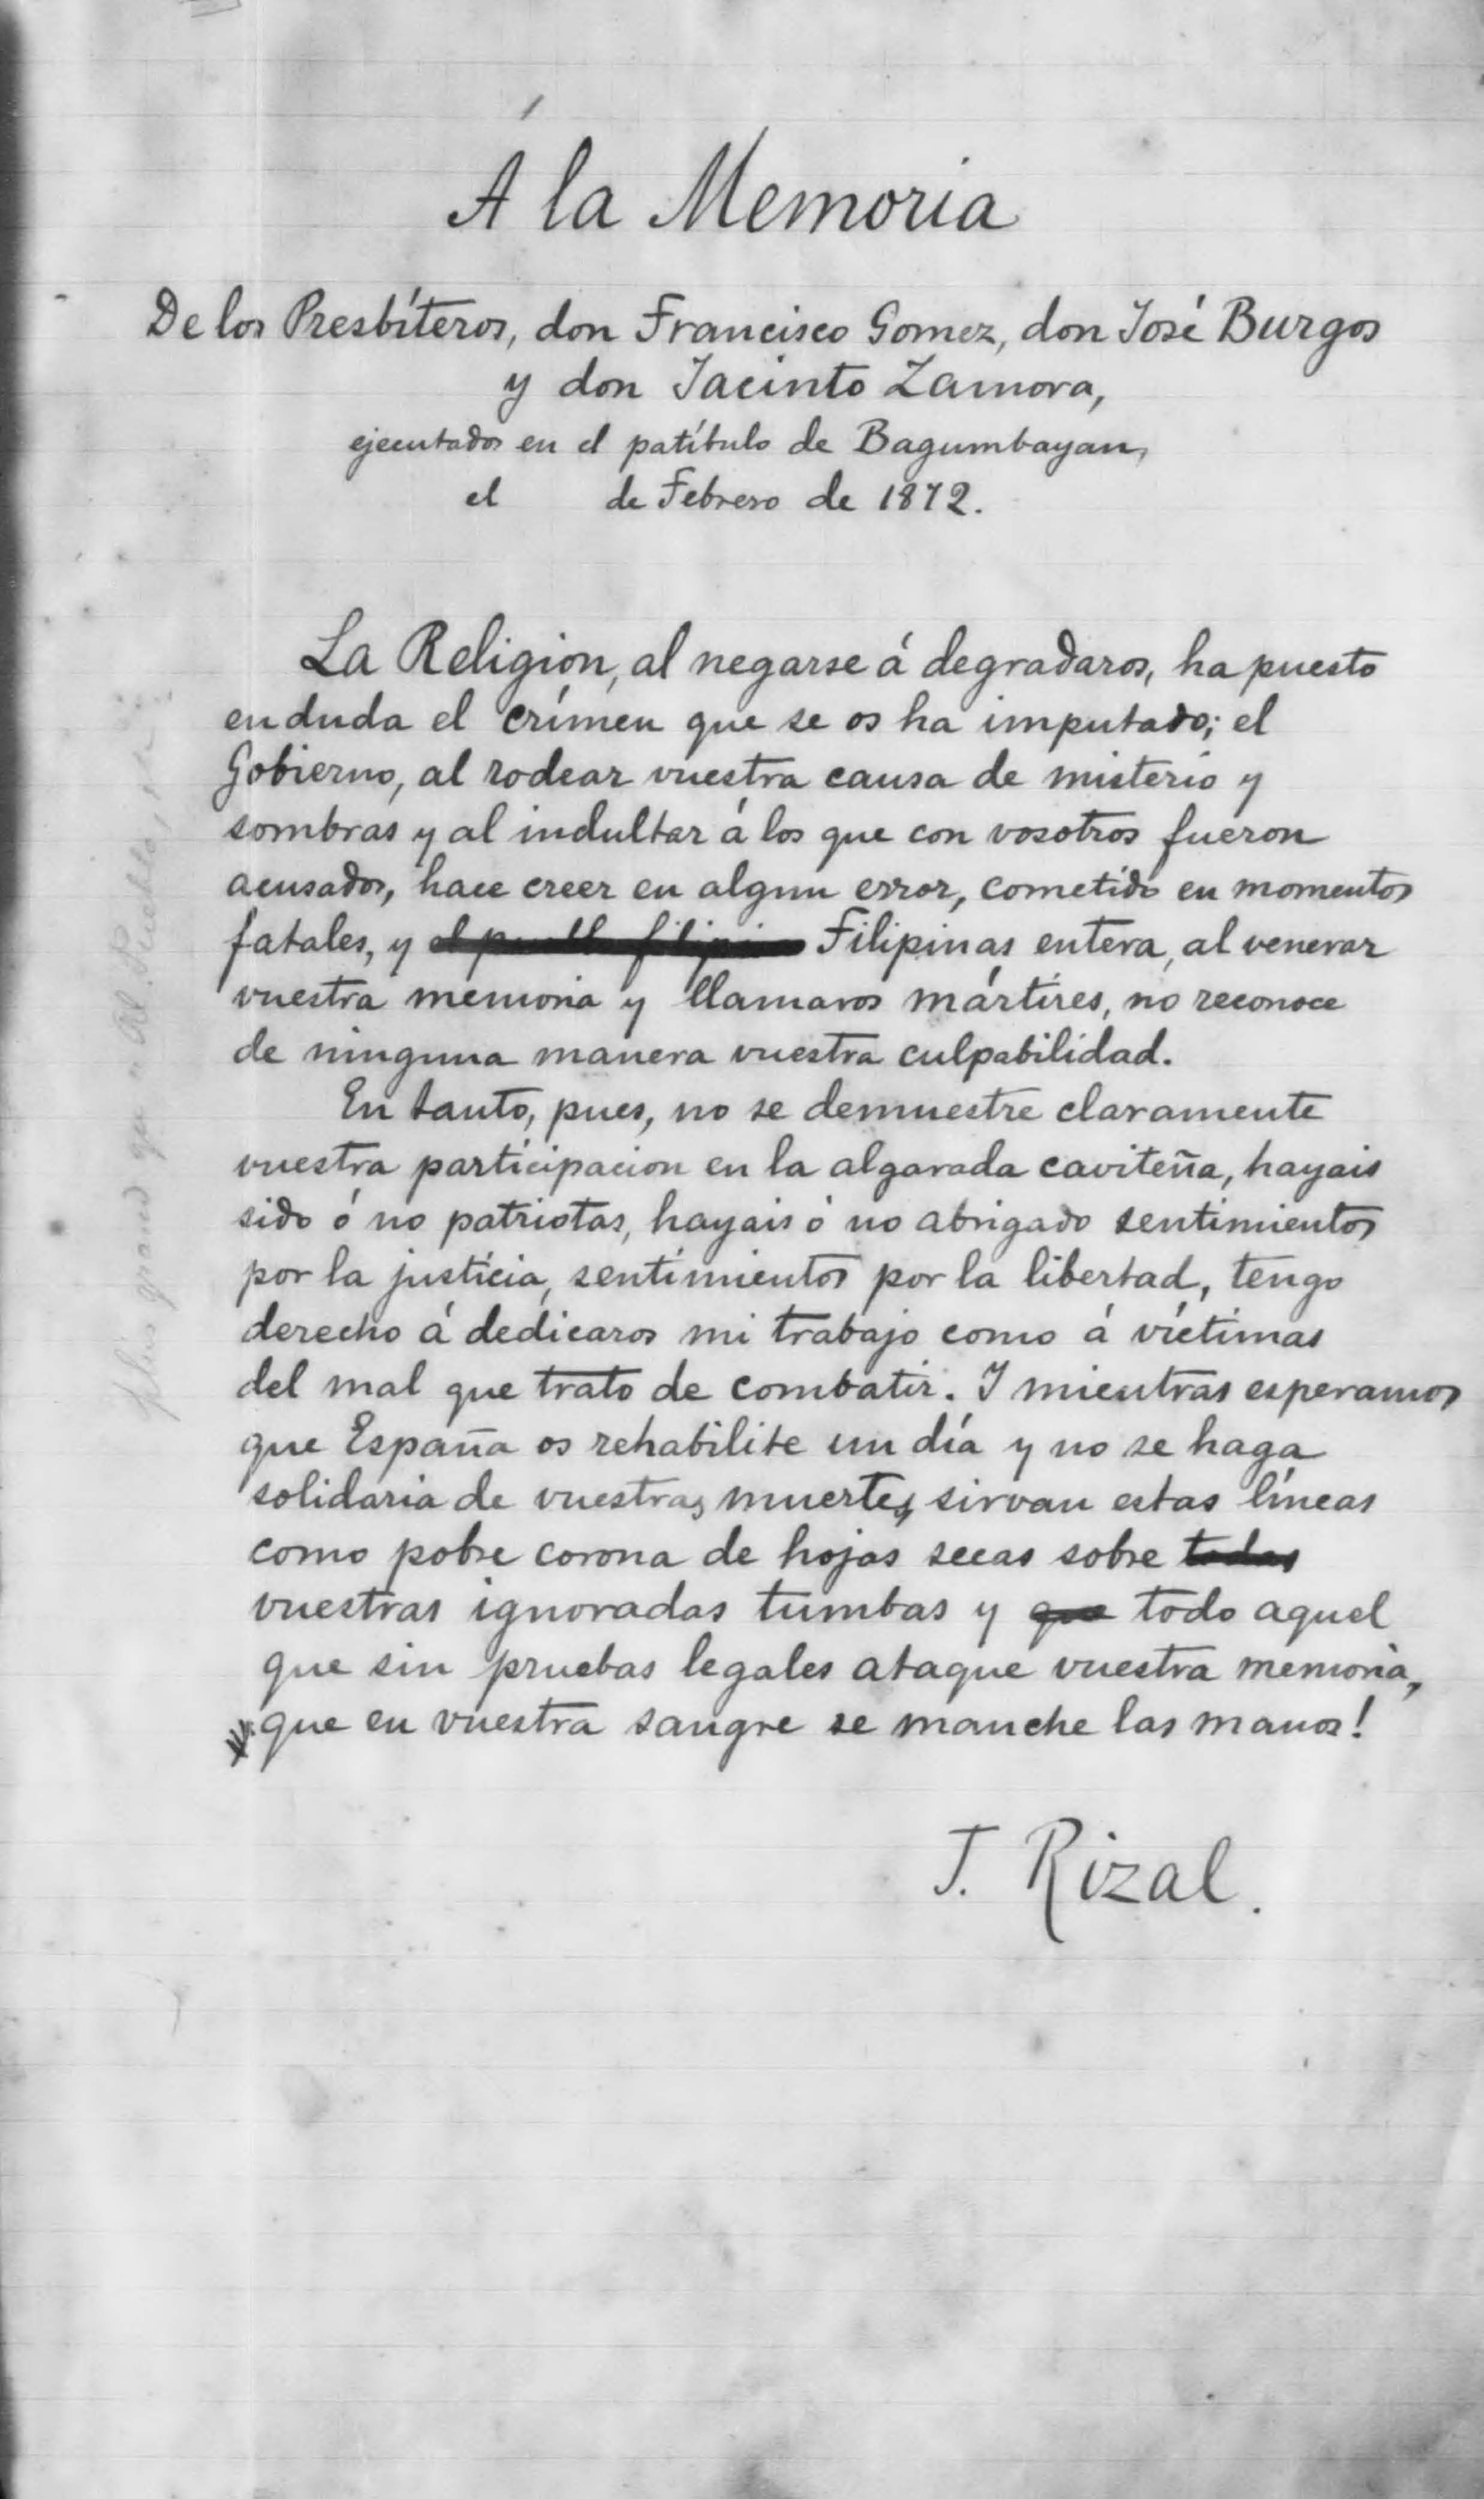 A la Memoria
De los Presbíteros, don Francisco Gomez, don José Burgos
y don Jacinto Zamora,
ejecutados en el patíbulo de Bagumbayan,
el de Febrero de 1872.
La Religion, al negarse á degradaros, ha puesto
en duda el crímen que se os ha imputado; el
Gobierno, al rodear vuestra causa de misterio y
sombras y al indultar á los que con vosotros fueron
acusados, hace creer en algun error, cometido en momentos
fatales, y Filipinas entera, al venerar
vuestra memoria y llamaros mártires, no reconoce
de ninguna manera vuestra culpabilidad.
En tanto, pues, no se demuestre claramente
vuestra participacion en la algarada caviteña, hayais
sido ó no patriotas, hayais ó no abrigado sentimientos
por la justicia, sentimientos por la libertad, tengo
derecho á dedicaros mi trabajo como á víctimas
del mal que trato de combatir. I mientras esperamos
que España os rehabilite un día y no se haga
solidaria de vuestras muertes, sirvan estas líneas
como pobre corona de hojas secas sobre todas
vuestras ignoradas tumbas y que todo aquel
que sin pruebas legales ataque vuestra memoria,
que en vuestra sangre se manche las manos!
J. Rizal.